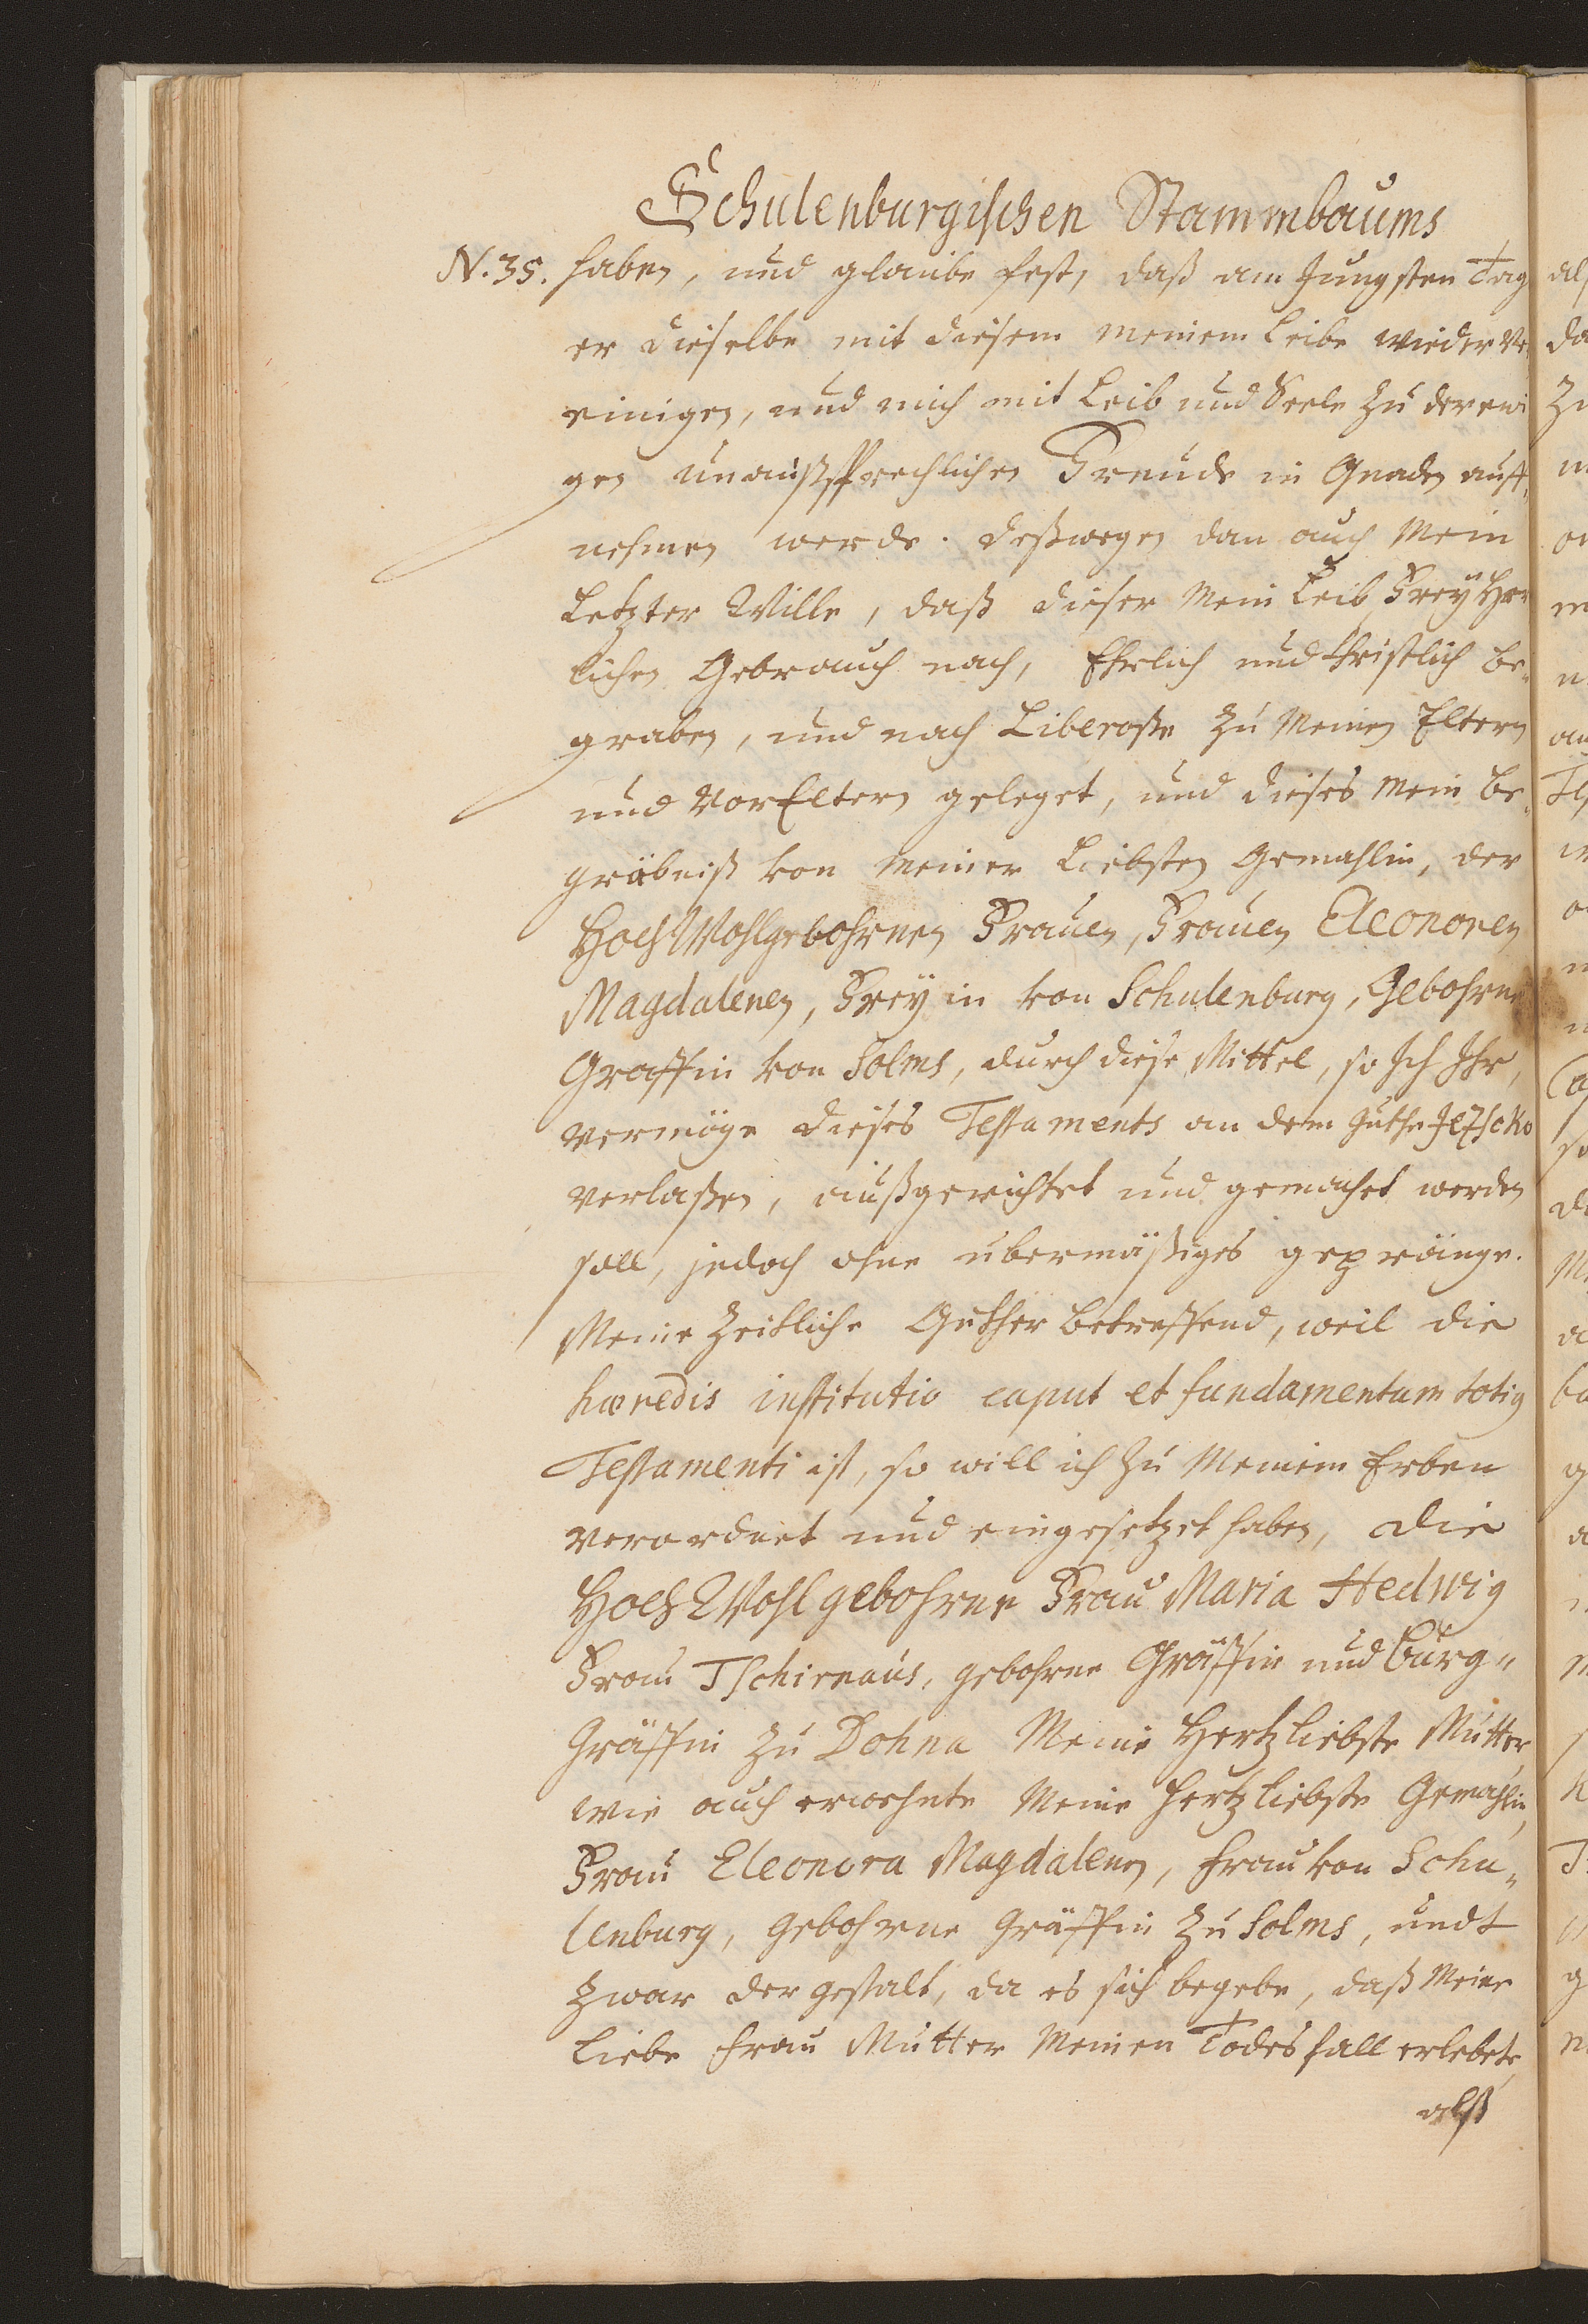 Schulenburgischen Stammbaums
N. 35. haben, und glaube fest, daß am Jungsten Tag
er dieselbe mit diesem meinem Leibe wieder ver
einigen, und mich mit Leib und Seele zu der ewi
gen unaußsprechlichen Freude in Gnaden auff„
nehmen werde. deßwegen dan auch Mein
Letzter Wille, daß dieser Mein Leib FreyHer
lichen Gebrauch nach, Ehrlich und Christlich be„
graben, und nach Liberoße zu Meinen Eltern
und VorEltern geleget, und dieses Mein Be„
gräbniß von Meiner Liebsten Gemahlin, der
HochWohlgebohrnen Frauen, Frauen Eleonoren
Magdalenen, Freyin von Schulenburg, Gebohrne
Graffin von Solms, durch diese Mittel, so Ich Ihr,
vermöge dieses Testaments an dem Guthe Jeßcko
verlaßen, außgerichtet und gemachet werden
soll, jedoch ohne ubermäßiges gepränge.
Meine Zeitliche Guther betreffend, weil die
hæredis institutio caput et fundamentum totius
Testamenti ist, so will ich zu Meinem Erben
verordnet und eingesetzet haben, die
HochWohlgebohrne Frau Maria Hedwig
Frau Tschirnaus, gebohrne Gräffin und Burg„
Gräffin zu Dohna Meine Hertzliebste Mutter
wie auch erwehnte Meine Hertzliebste Gemahlin,
Frau Eleonora Magdalenen, Frau von Schu„
lenburg, Gebohrne Gräffin zu Solms, undt
zwar der gestalt, da es sich begebe, daß Meine
Liebe Frau Mutter Meinen Todesfall erlebete,
alß